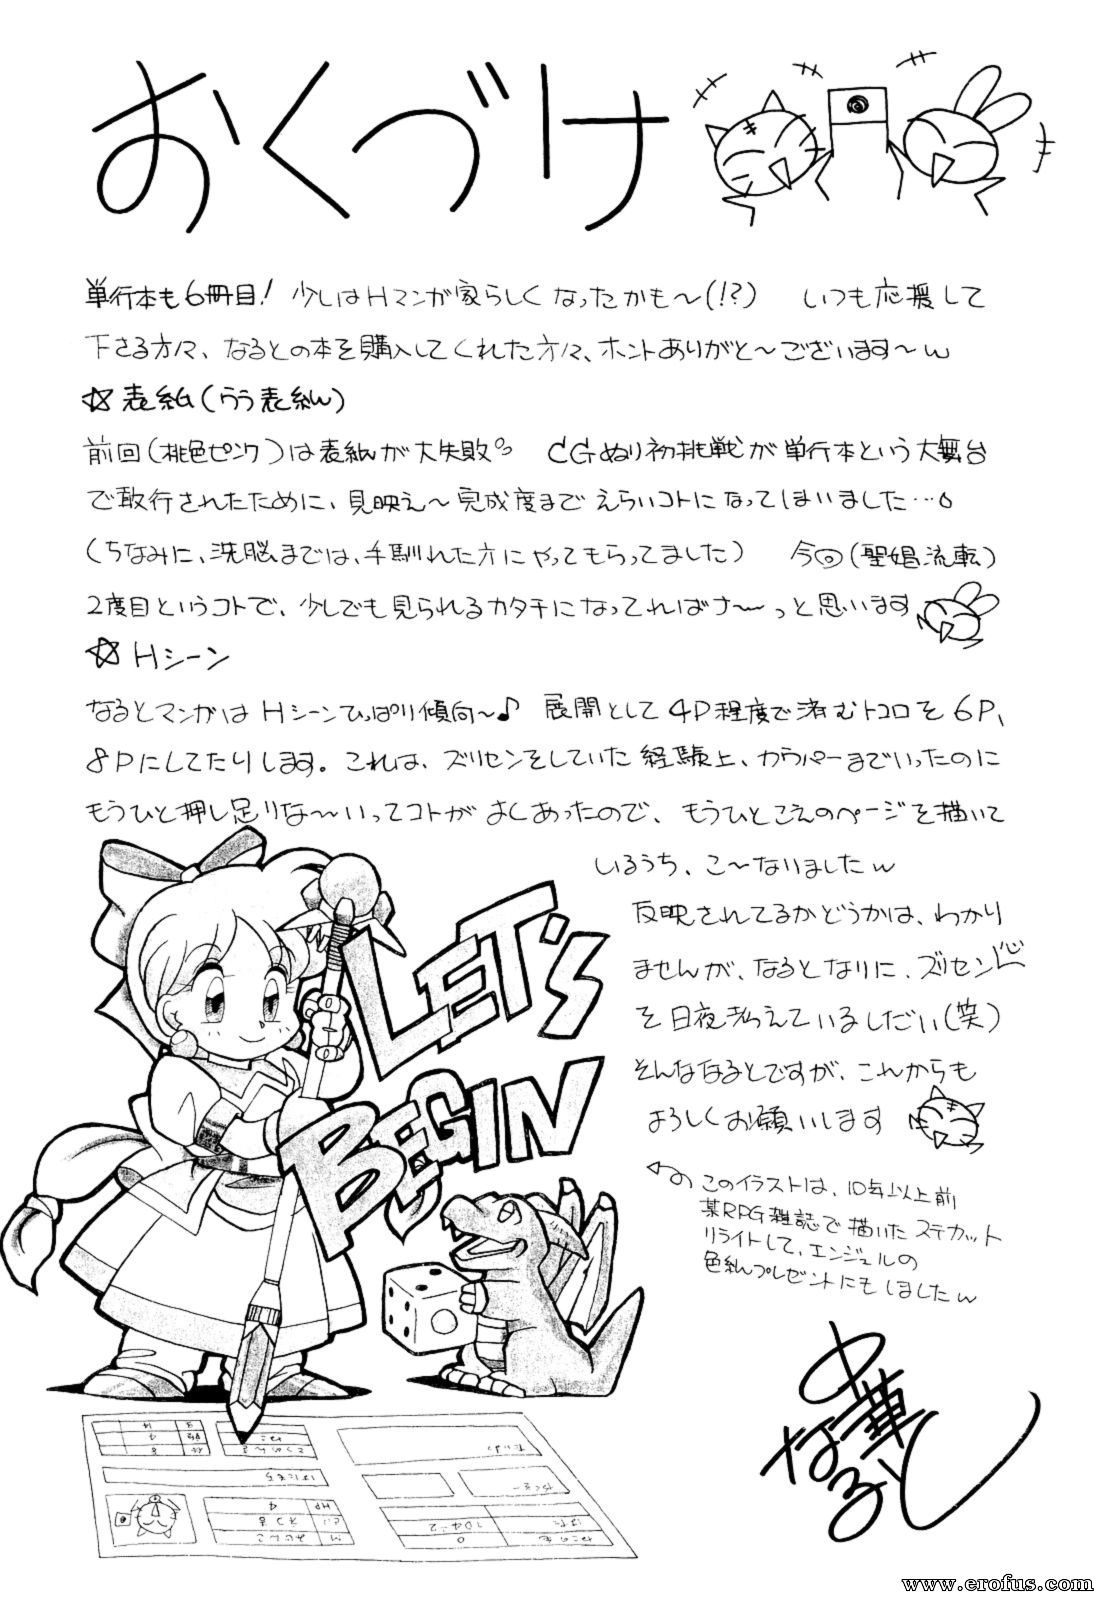 おくづけ
単行本も6冊目! 少しはHマンガ家らしくなったかも〜(!?) いつも応援して
下さる方々、なるとの本を購入してくれた方々、ホントありがと〜ございます〜w
☆表紙(うう表紙)
前回(桃色ピンク)は表紙が大失敗。 CGぬり初挑戦が単行本という大舞台
で敢行されたために、見映え〜完成度までえらいコトになってしまいました…。
(ちなみに、洗脳までは、手馴れた方にやってもらってました) 今回(聖娼流転)
2度目というコトで、少しでも見られるカタチになってればナ〜っと思います
☆Hシーン
なるとマンガはHシーンひっぱり傾向〜♪ 展開として4P程度で済むトコロを6P、
8Pにしてたりします。これは、ズリセンをしていた経験上、カウパーまでいったのに
もうひと押し足りな〜いってコトがよくあったので、もうひとこえのページを描いて
いるうち、こ〜なりましたw
反映されてるかどうかは、わかり
ませんが、なるとなりに、ズリセン心
を日夜考えているしだい(笑)
そんななるとですが、これからも
よろしくお願いします
このイラストは、10年以上前
某RPG雑誌で描いたステカット
リライトして、エンジェルの
色紙プレゼントにもしましたw
LET'S
BEGIN
中華なると
www.erofus.com